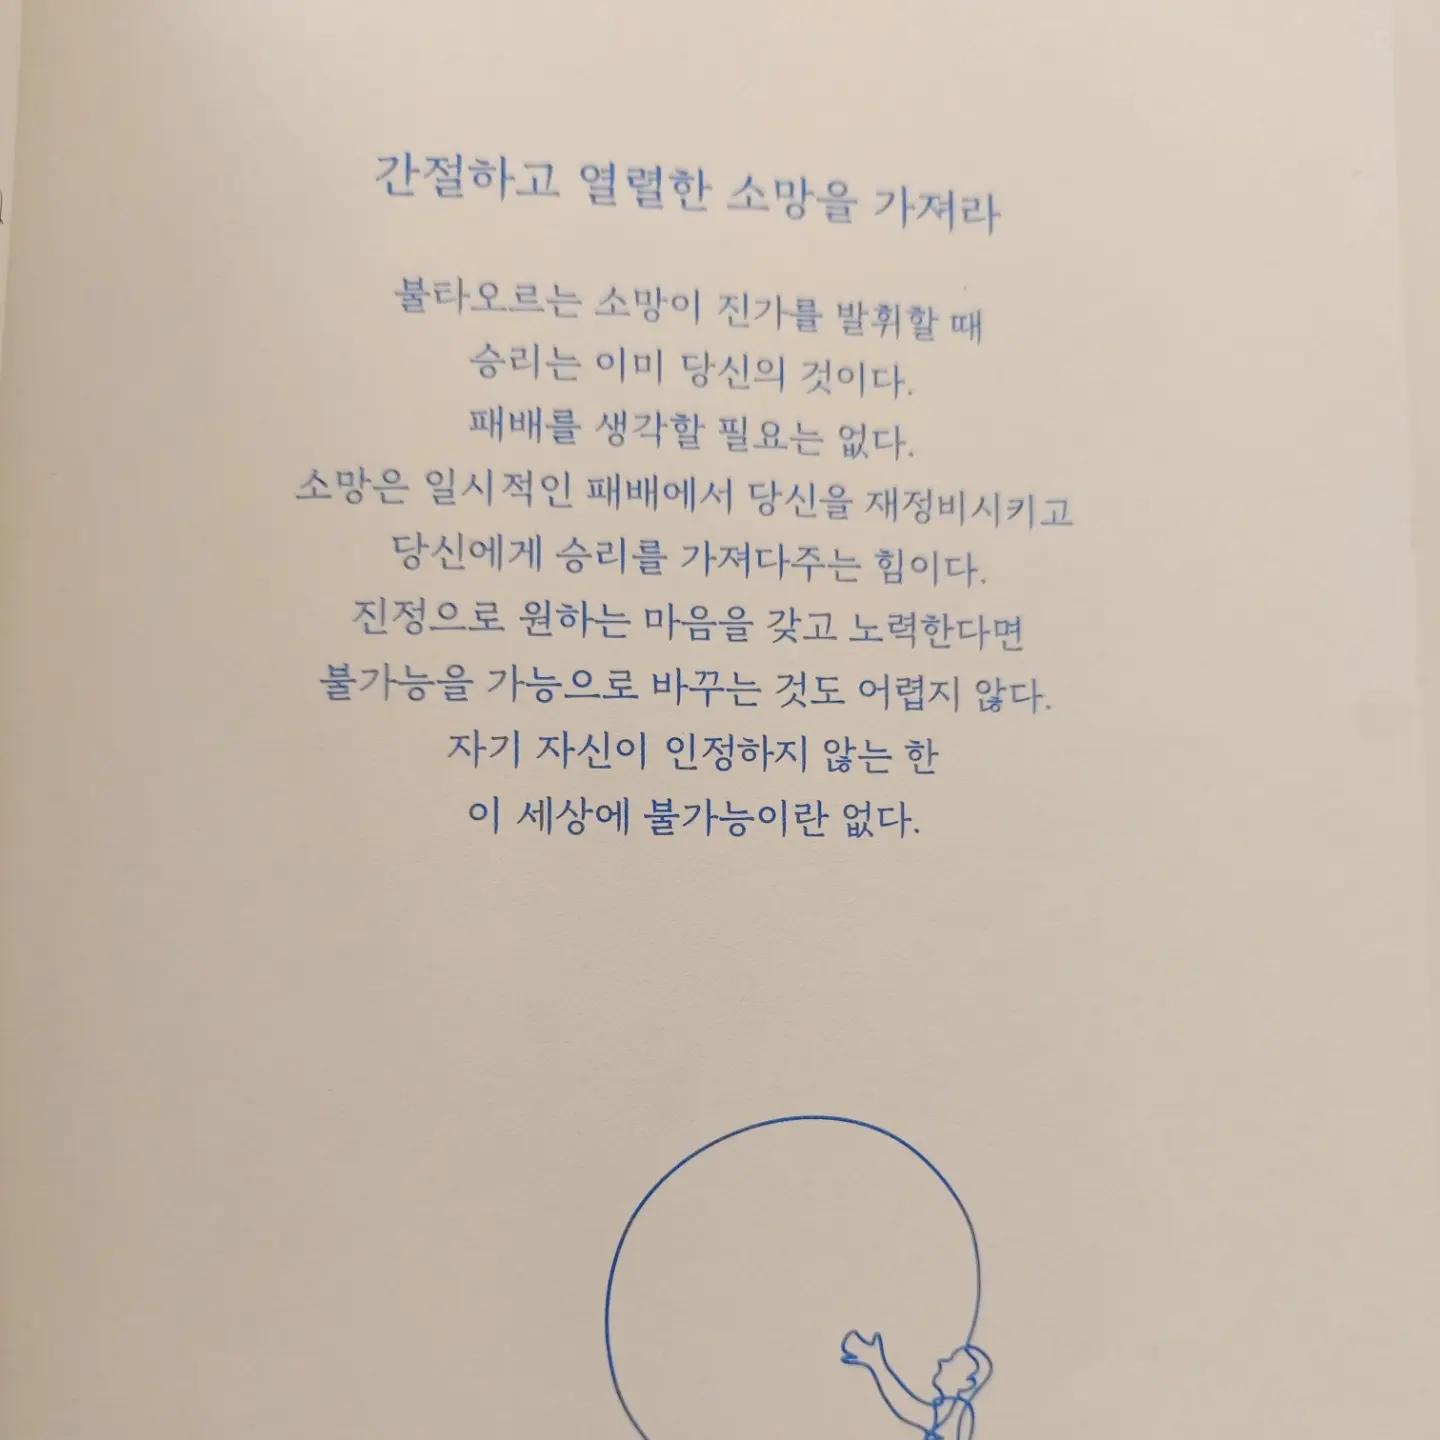 간절하고 열렬한 소망을 가져라
불타오르는 소망이 진가를 발휘할 때
승리는 이미 당신의 것이다.
패배를 생각할 필요는 없다.
소망은 일시적인 패배에서 당신을 재정비시키고
당신에게 승리를 가져다주는 힘이다.
진정으로 원하는 마음을 갖고 노력한다면
불가능을 가능으로 바꾸는 것도 어렵지 않다.
자기 자신이 인정하지 않는 한
이 세상에 불가능이란 없다.